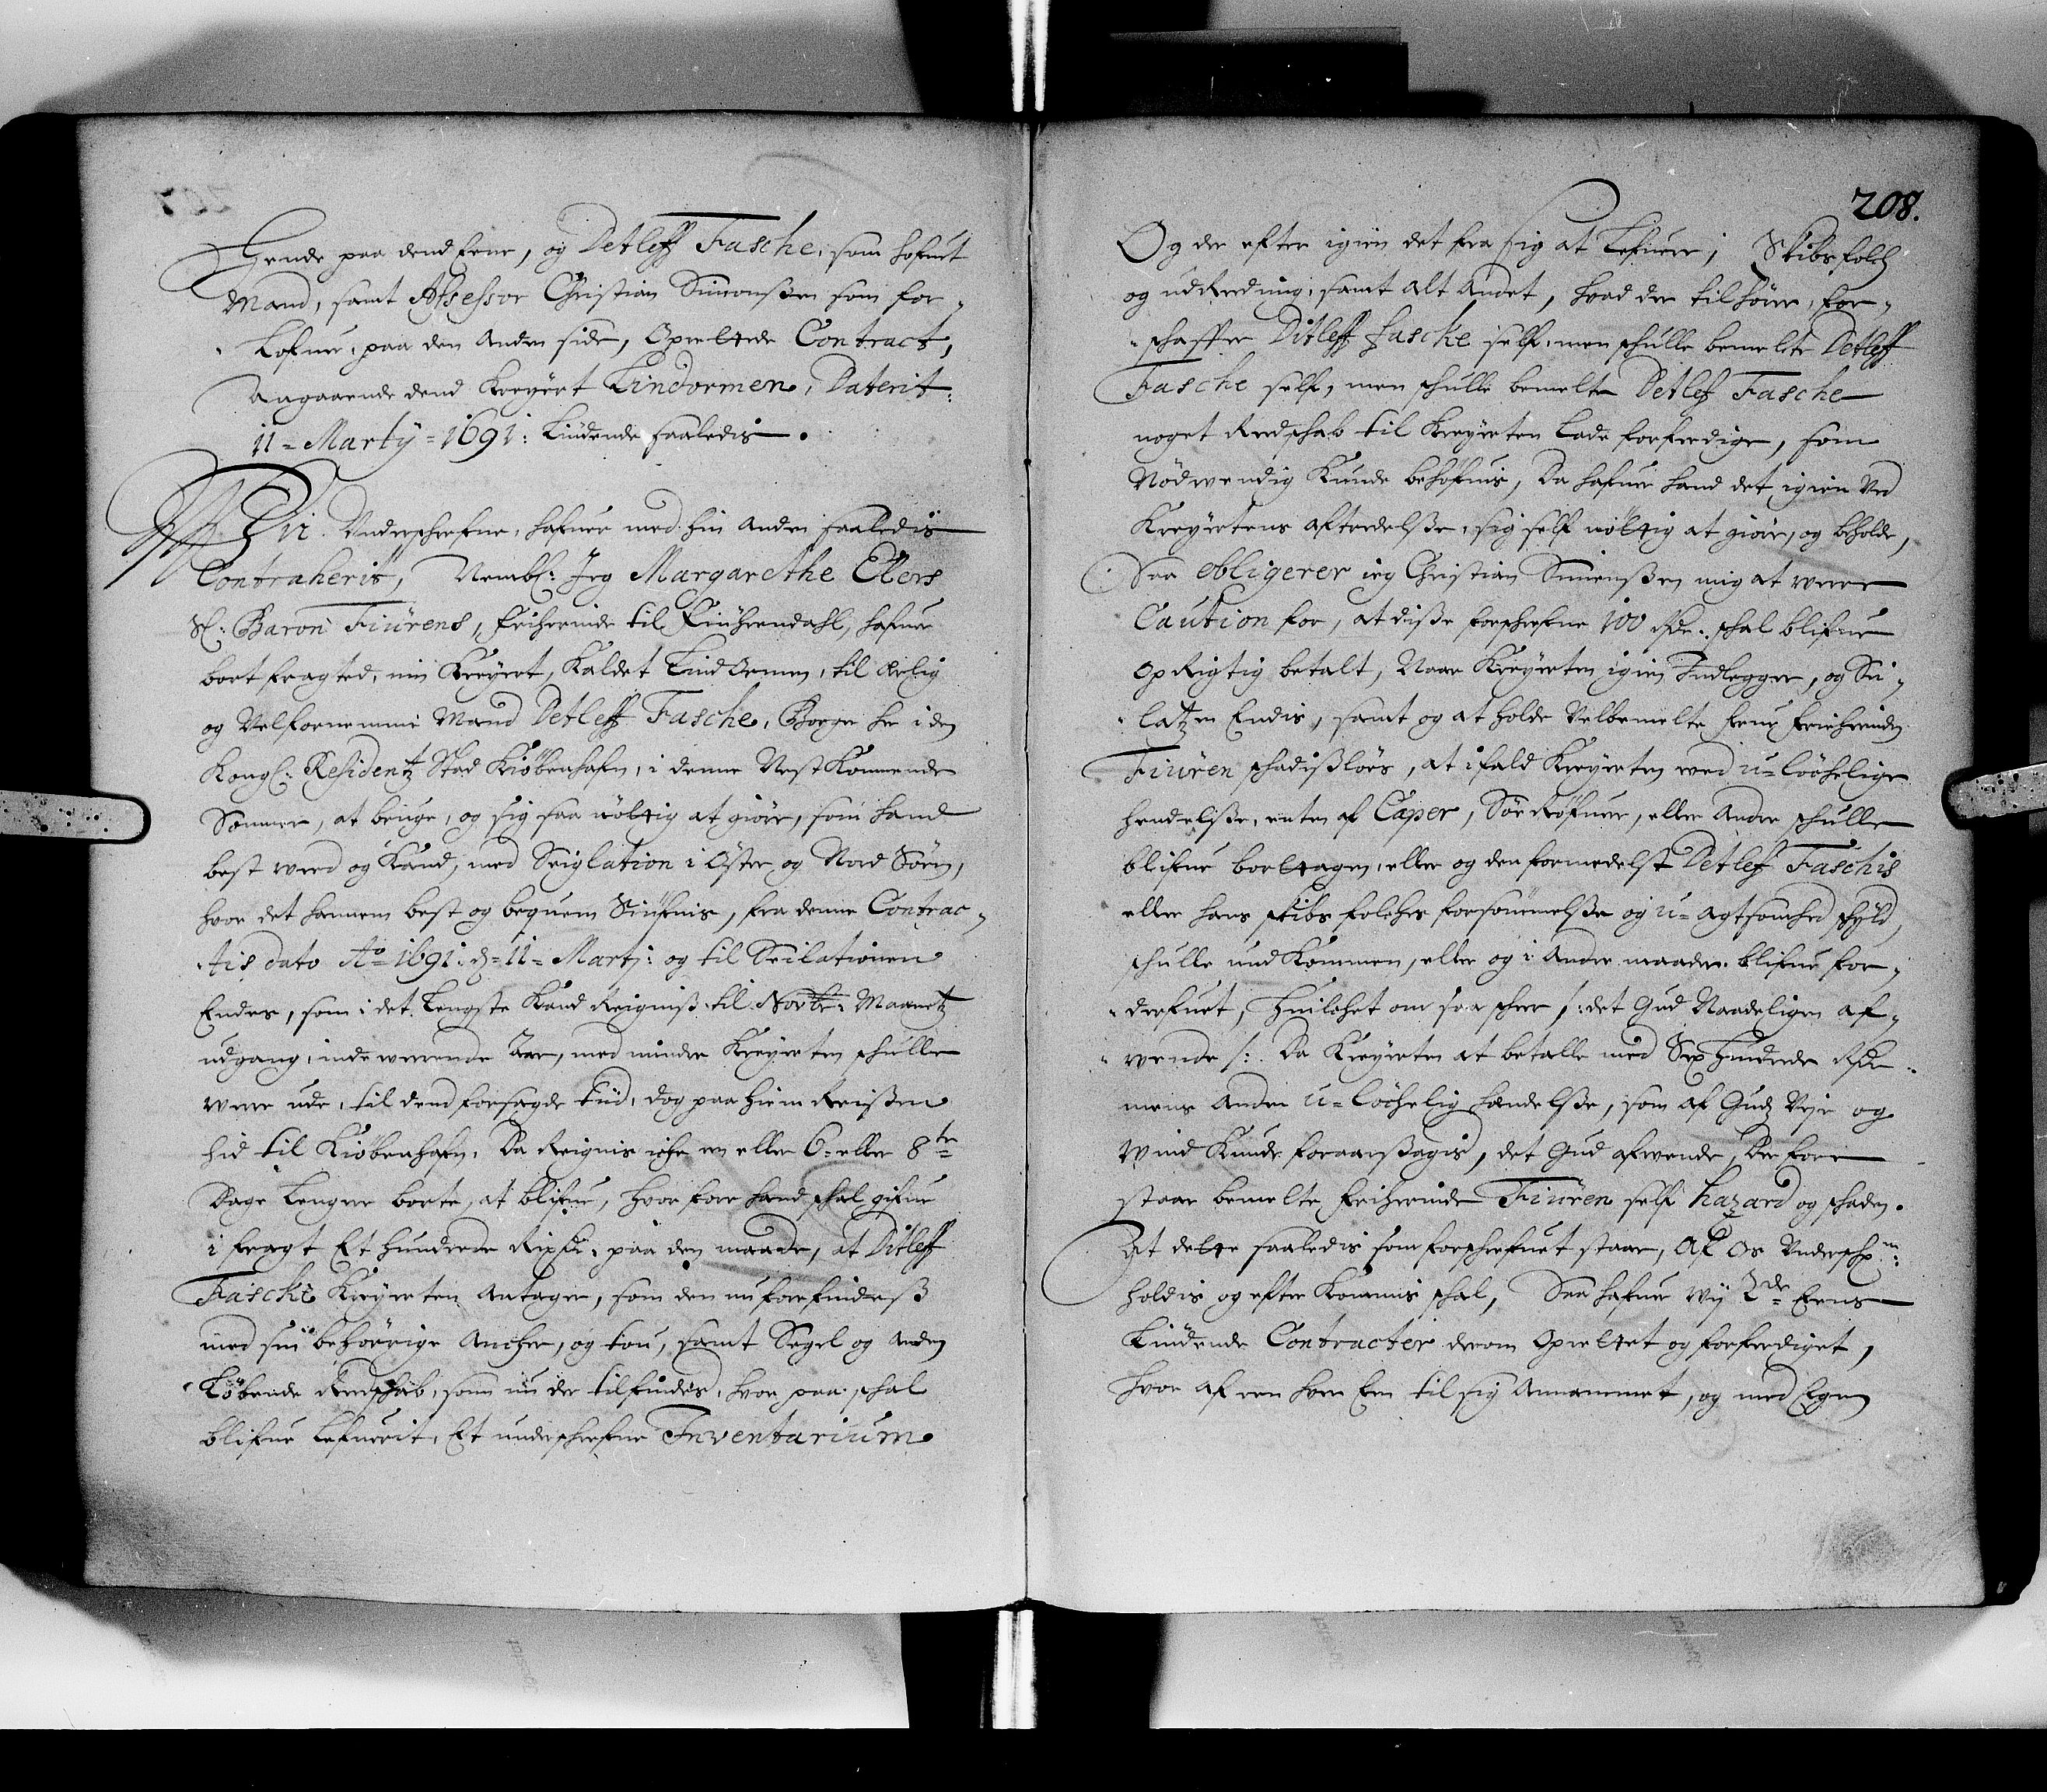 Hende paa dend Eene, og Detleff Fasche, som hofuet
Mand, samt Assessor Christian Simonsßen som for„
„Lofuer, paa den Anden side, Oprettede Contract,
Angaaende dend Kreyert Lindormen, Daterit:
11 = Martÿ = 1691: Liudende saaledis.
Vii Underschrefne, hafuer med hin Anden saaledis
Contraherit, Nembl: Jeg Margarethe Eilers
Sl: Baron Fiurens, friherinde til Fiuhrendahl, hafuer
bort fragted, min Kreyert, Kaldet LindOrmen, til Ærlig
og Velfornemme Mand Detleff Fasche, Borger her i den
Kongl: Residentz Stad Kiøbenhafn, i denne NestKommende
Sommer, at bruge, og sig saa nøttig at giøre, som hand
best veed og Kand, med Seiglation i Øster og Nord Søen,
hvor det hannem best og bequem Siufnis, fra denne Contrac„
„tis dato Ao 1691: d: 11 = Martj: og til Seilationen
Endes, som i det Lengste Kand Reigniß til Novbr: Maanetz
udgang, indeverende Aar, med mindre Kreyerten schulle
vere ude, til dend forsagde tiid, dog paa hiem Reisßen
hid til Kiøbenhafn, Da Reignis iche en eller 6 = eller 8te
Dage Lenger borte, at blifue, hvor fore hand schal gifue
i fragt Et hundrede Rixdr, paa den maade, at Ditleff
Fasche Kreyerten Antager, som den nu forefindeß
med sin behørige Ancher, og tou, samt Segel og Anden
Løbende Redschab, som nu der tilfindes, hvor paa schal
blifue Lefuerit, Et underschrefne Inventarium
208.
Og der efter igien det fra sig at Lefuere; Skibsfolch
og udRedning, samt Alt Andet, hvad der tilhører, for„
„schaffer Ditleff Fasche self, men schulle bemelte Detleff
Fasche self, men schulle bemelte Detleff Fasche
noget Redschab til Kreyerten Lade forferdige, som
Nødvendig Kunde behøfuis, Da hafuer hand det igien Ved
Kreyertens aftredelsße, sig self nøttig at giøre, og beholde,
Saa obligerer ieg Christian Simensßen mig at were
Caution for, at disße forschrefne 100 rdr. schal blifue
OpRigtig betalt, Naar Kreyerten igien Indlegger, og Sei„
„latzen Endis, samt og at holde Velbemelte Frue friherinde
Fiuren schadisßløes, at ifald Kreyerten wed u=loðhelige
hendelsße, enten af Caper, Sørøfuer, eller Andre schulle
blifue borttagen, eller og den formedelst Detlef Faschis
eller hans skibs folches forsømmelsße og u= Agtsomhed schyld,
schulle undKommen, eller og i Andre maader blifue for„
„derfuet, Huilchet om saa scher /: det Gud Naadeligen af„
„wende :/ Da Kreyerten at betalle med Sex Hundrede Rdr.
mens Anden u=loðhelig hendelsße, som af Gudz Vejr og
Wind Kunde foraarsßagis, det Gud afwende, Derfore
staar bemelte friherinde Fiuren self hazard og schaden.
At dette saaledis som forschrefuet staar, Af Os Underschr:
holdis og efter Kommis schal, Saa hafuer wij 2de Eens
Liudende Contracter derom Oprettet og forferdiget,
Hvor af een hver Een til sig Annammet, og med Egen